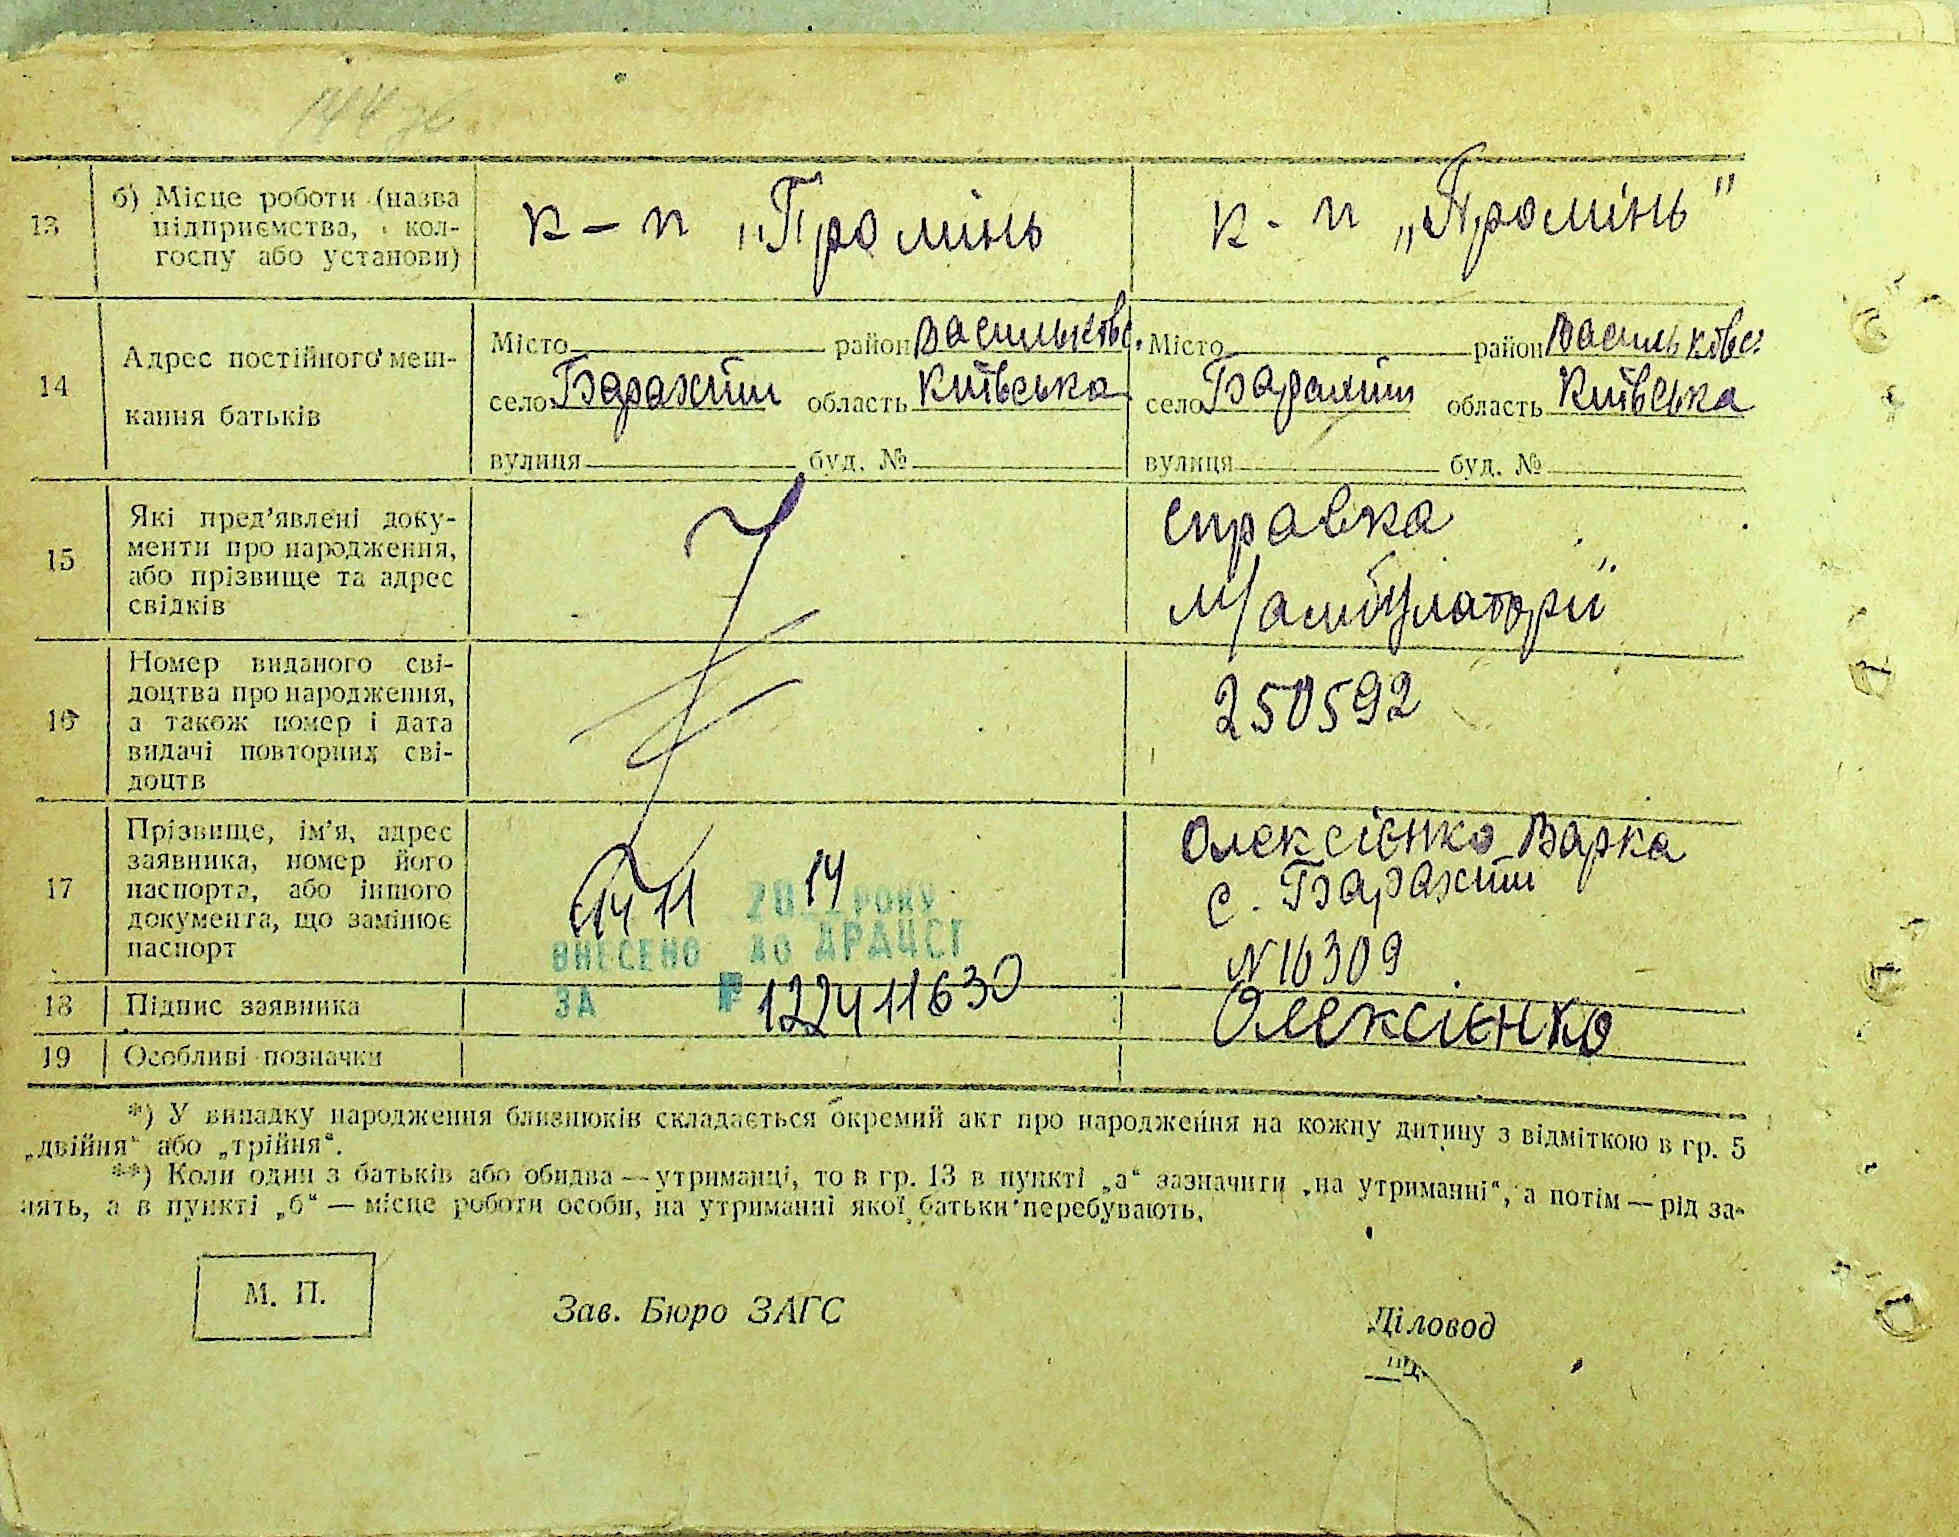 13
б) Місце роботи (назва
підприємства, кол-
госпу або установи)
к-п „Промінь
к-п „Промінь"
14
Адрес постійного меш-
кання батьків
Місто район Васильківс.
село Барахти область Київська
вулиця буд. №
Місто район Васильківс:
село Барахти область Київська
вулиця буд. №
15
Які пред'явлені доку-
менти про народження,
або прізвище та адрес
свідків
справка
м/амбулаторії
16
Номер виданого сві-
доцтва про народження,
а також номер і дата
видачі повторних сві-
доцтв
250592
17
Прізвище, ім'я, адрес
заявника, номер його
паспорта, або іншого
документа, що замінює
паспорт
14 11 2014 РОКУ
ВНЕСЕНО ДО ДРАЦСГ
ЗА № 122411630
Олексієнко Варка
с. Барахти
N 16309
18
Підпис заявника
Олексієнко
19
Особливі позначки
*) У випадку народження близнюків складається окремий акт про народження на кожну дитину з відміткою в гр. 5
„двійня“ або „трійня“.
**) Коли один з батьків або обидва — утриманці, то в гр. 13 в пункті „а“ зазначити „на утриманні“, а потім — рід за-
нять, а в пункті „б“ — місце роботи особи, на утриманні якої батьки перебувають.
М. П.
Зав. Бюро ЗАГС
Діловод